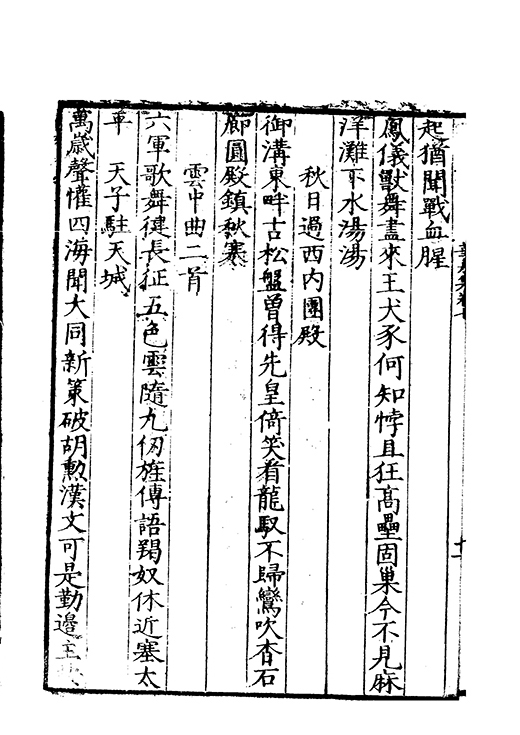 起猶聞戰血腥
鳳儀獸舞盡來王犬豕何知悖且狂髙壘固巢今不見麻
洋灘下水湯湯
秋日過西内團殿
御溝東畔古松盤曾得先皇倚笑看龍馭不歸鸞吹杳石
廊圓殿鎮秋寒
雲中曲二首
六軍歌舞徤長征五色雲隨九仞旌傳語羯奴休近塞太
平天子駐天城
萬歲聲懽四海聞大同新策破胡勲漢文可是勤邊主